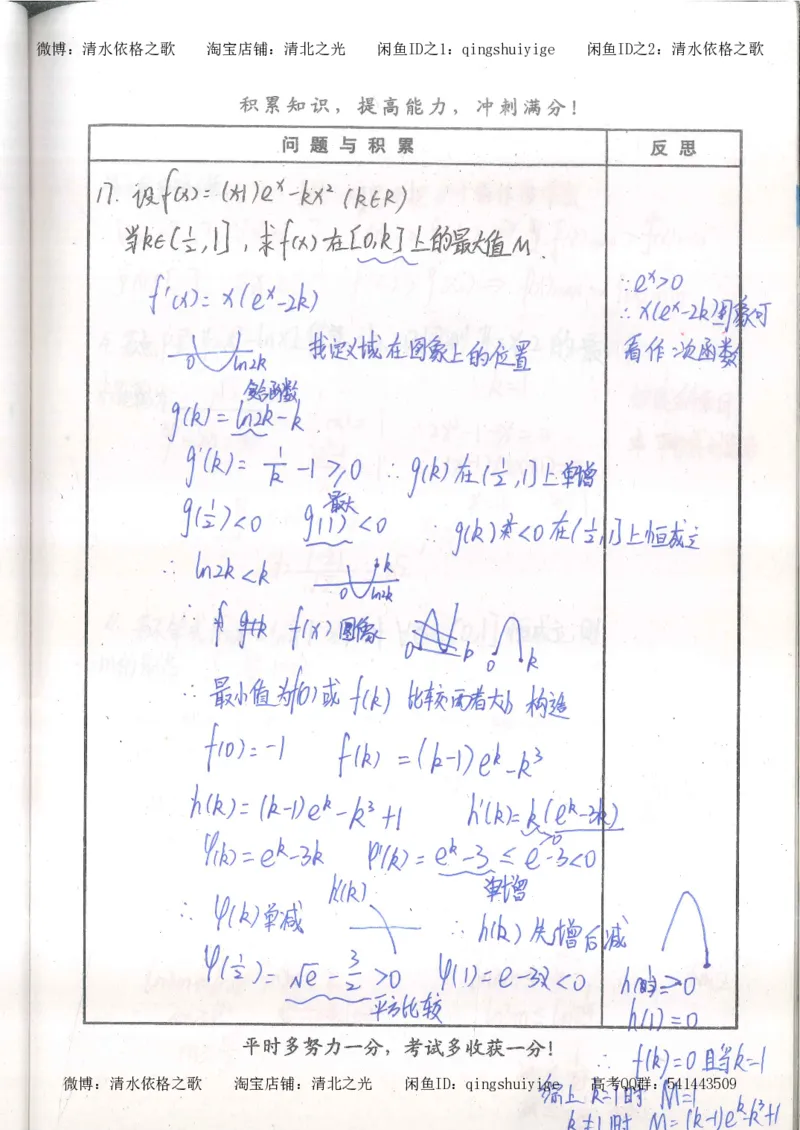 微博：清水依格之歌 淘宝店铺：清北之光 闲鱼ID之1：qingshuiyige 闲鱼ID之2：清水依格之歌
积累知识，提高能力，冲刺满分！
问题与积累 反思
17. 设f(x)=(x-1)e^x-kx² (k∈R)
当k∈(½,1]，求f(x)在[0,k]上的最大值M.
f'(x)=x(e^x-2k)
∵e^x>0
∴x(e^x-2k)图象可
看作二次函数
0 ln2k 找定义域在图象上的位置
g(k)=ln2k-k
g'(k)=1/k-1≥0 ∴g(k)在(½,1]上单增
g(½)<0 g(1)<0 最大 ∴g(k)<0在(½,1]上恒成立
∴ln2k<k 0 ln2k k
f(x)图象 0 k 0 k
∴最小值为f(0)或f(k) 比较两者大小 构造
f(0)=-1 f(k)=(k-1)e^k-k³
h(k)=(k-1)e^k-k³+1 h'(k)=k(e^k-3k)
φ(k)=e^k-3k φ'(k)=e^k-3≤e-3<0
单增
∴φ(k)单减 h'(k) ∴h(k)先增后减
φ(½)=√e-3/2>0 φ(1)=e-3<0
平方比较
h(½)>0
h(1)=0
平时多努力一分，考试多收获一分！
∴f(k)=0且当k=1
微博：清水依格之歌 淘宝店铺：清北之光 闲鱼ID：qingshuiyige 高考QQ群：541443509
综上 k=1时 M=1
k≠1时 M=(k-1)e^k-k³+1